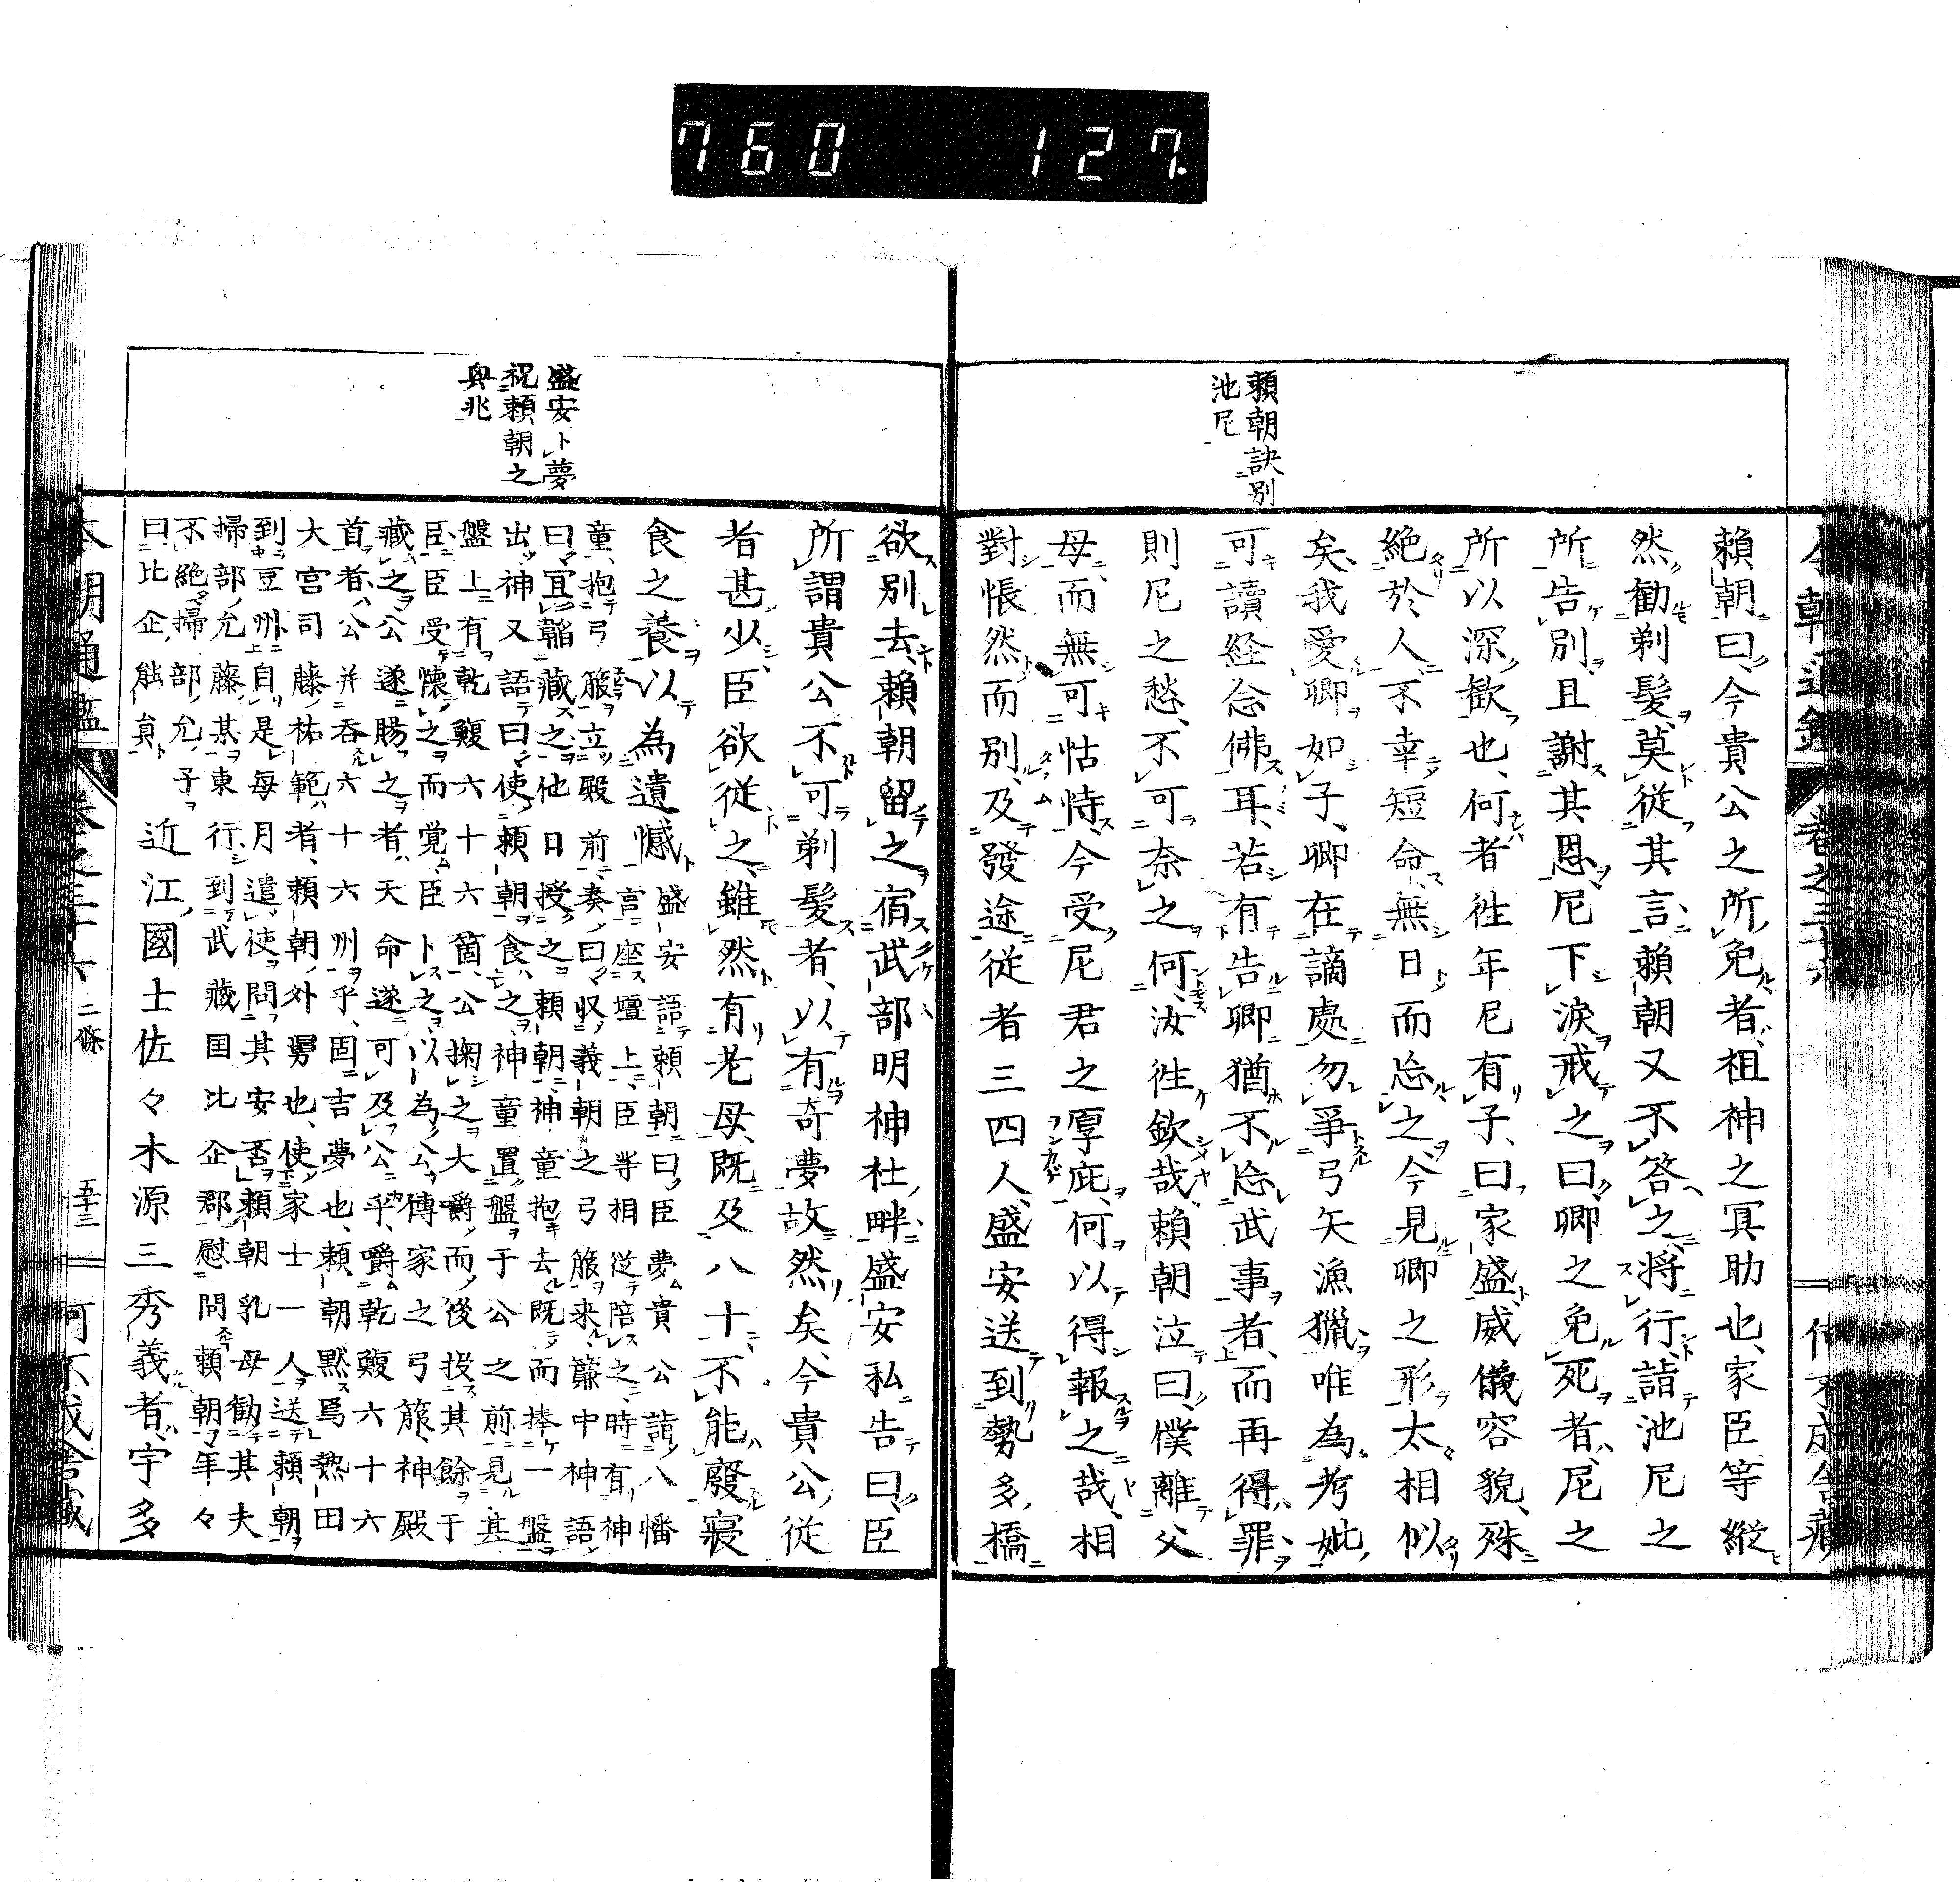 760 127.
賴朝訣別
池尼
賴朝曰、今貴公之所免者、祖神之冥助也、家臣等縱
然勸剃髮、莫從其言、賴朝又不答之、將行、詣池尼之
所告別、且謝其恩、尼下淚戒之曰、卿之免死者、尼之
所以深歡也、何者徃年尼有子、曰家盛、威儀容貌、殊
絕於人、不幸短命、無日而忘之、今見卿之形太相似
矣、我愛卿如子、卿在謫處、勿爭弓矢漁獵、唯為考妣、
可讀経念佛耳、若有告卿猶不忘武事者、而再得罪、
則尼之愁、不可奈之何、汝徃欽哉、賴朝泣曰、僕離父
母、而無可怙恃、今受尼君之厚庇、何以得報之哉、相
對悵然而別、及發途、從者三四人、盛安送到勢多橋
盛安卜夢
祝賴朝之
與兆
欲別去、賴朝留之、宿武部明神社畔、盛安私告曰、臣
所謂貴公不可剃髮者、以有奇夢故然矣、今貴公從
者甚少、臣欲從之、雖然有老母、既及八十、不能廢寢
食之養、以為遺憾、
盛安語賴朝曰、臣夢貴公詣八幡
宮、座壇上、臣等相從陪之、時有神
童、抱弓箙立殿前、奏曰、収義朝之弓箙來、簾中神語
曰、宜韜藏之、他日授之賴朝、神童抱去、既而捧一盤
出、神又語曰、使賴朝食之、神童置盤于公之前、見其
盤上有乾鰒六十六箇、公掬之大嚼、而後投其餘于
臣、臣受懷之而覺、臣卜之、以為公傳家之弓箙、神殿
藏之、公遂賜之者、天命遂可及公乎、嚼乾鰒六十六
首者、公并吞六十六州乎、固吉夢也、賴朝默焉、熱田
大宮司藤祐範者、賴朝外舅也、使家士一人送賴朝
到豆州、自是每月遣使問其安否、賴朝乳母勸其夫
掃部允藤某東行、到武藏国比企郡、慰問賴朝、年々
不絕、掃部允子
曰比企能員
近江國士佐々木源三秀義者、宇多
本朝通鑑 卷之三十六 二條 五十三